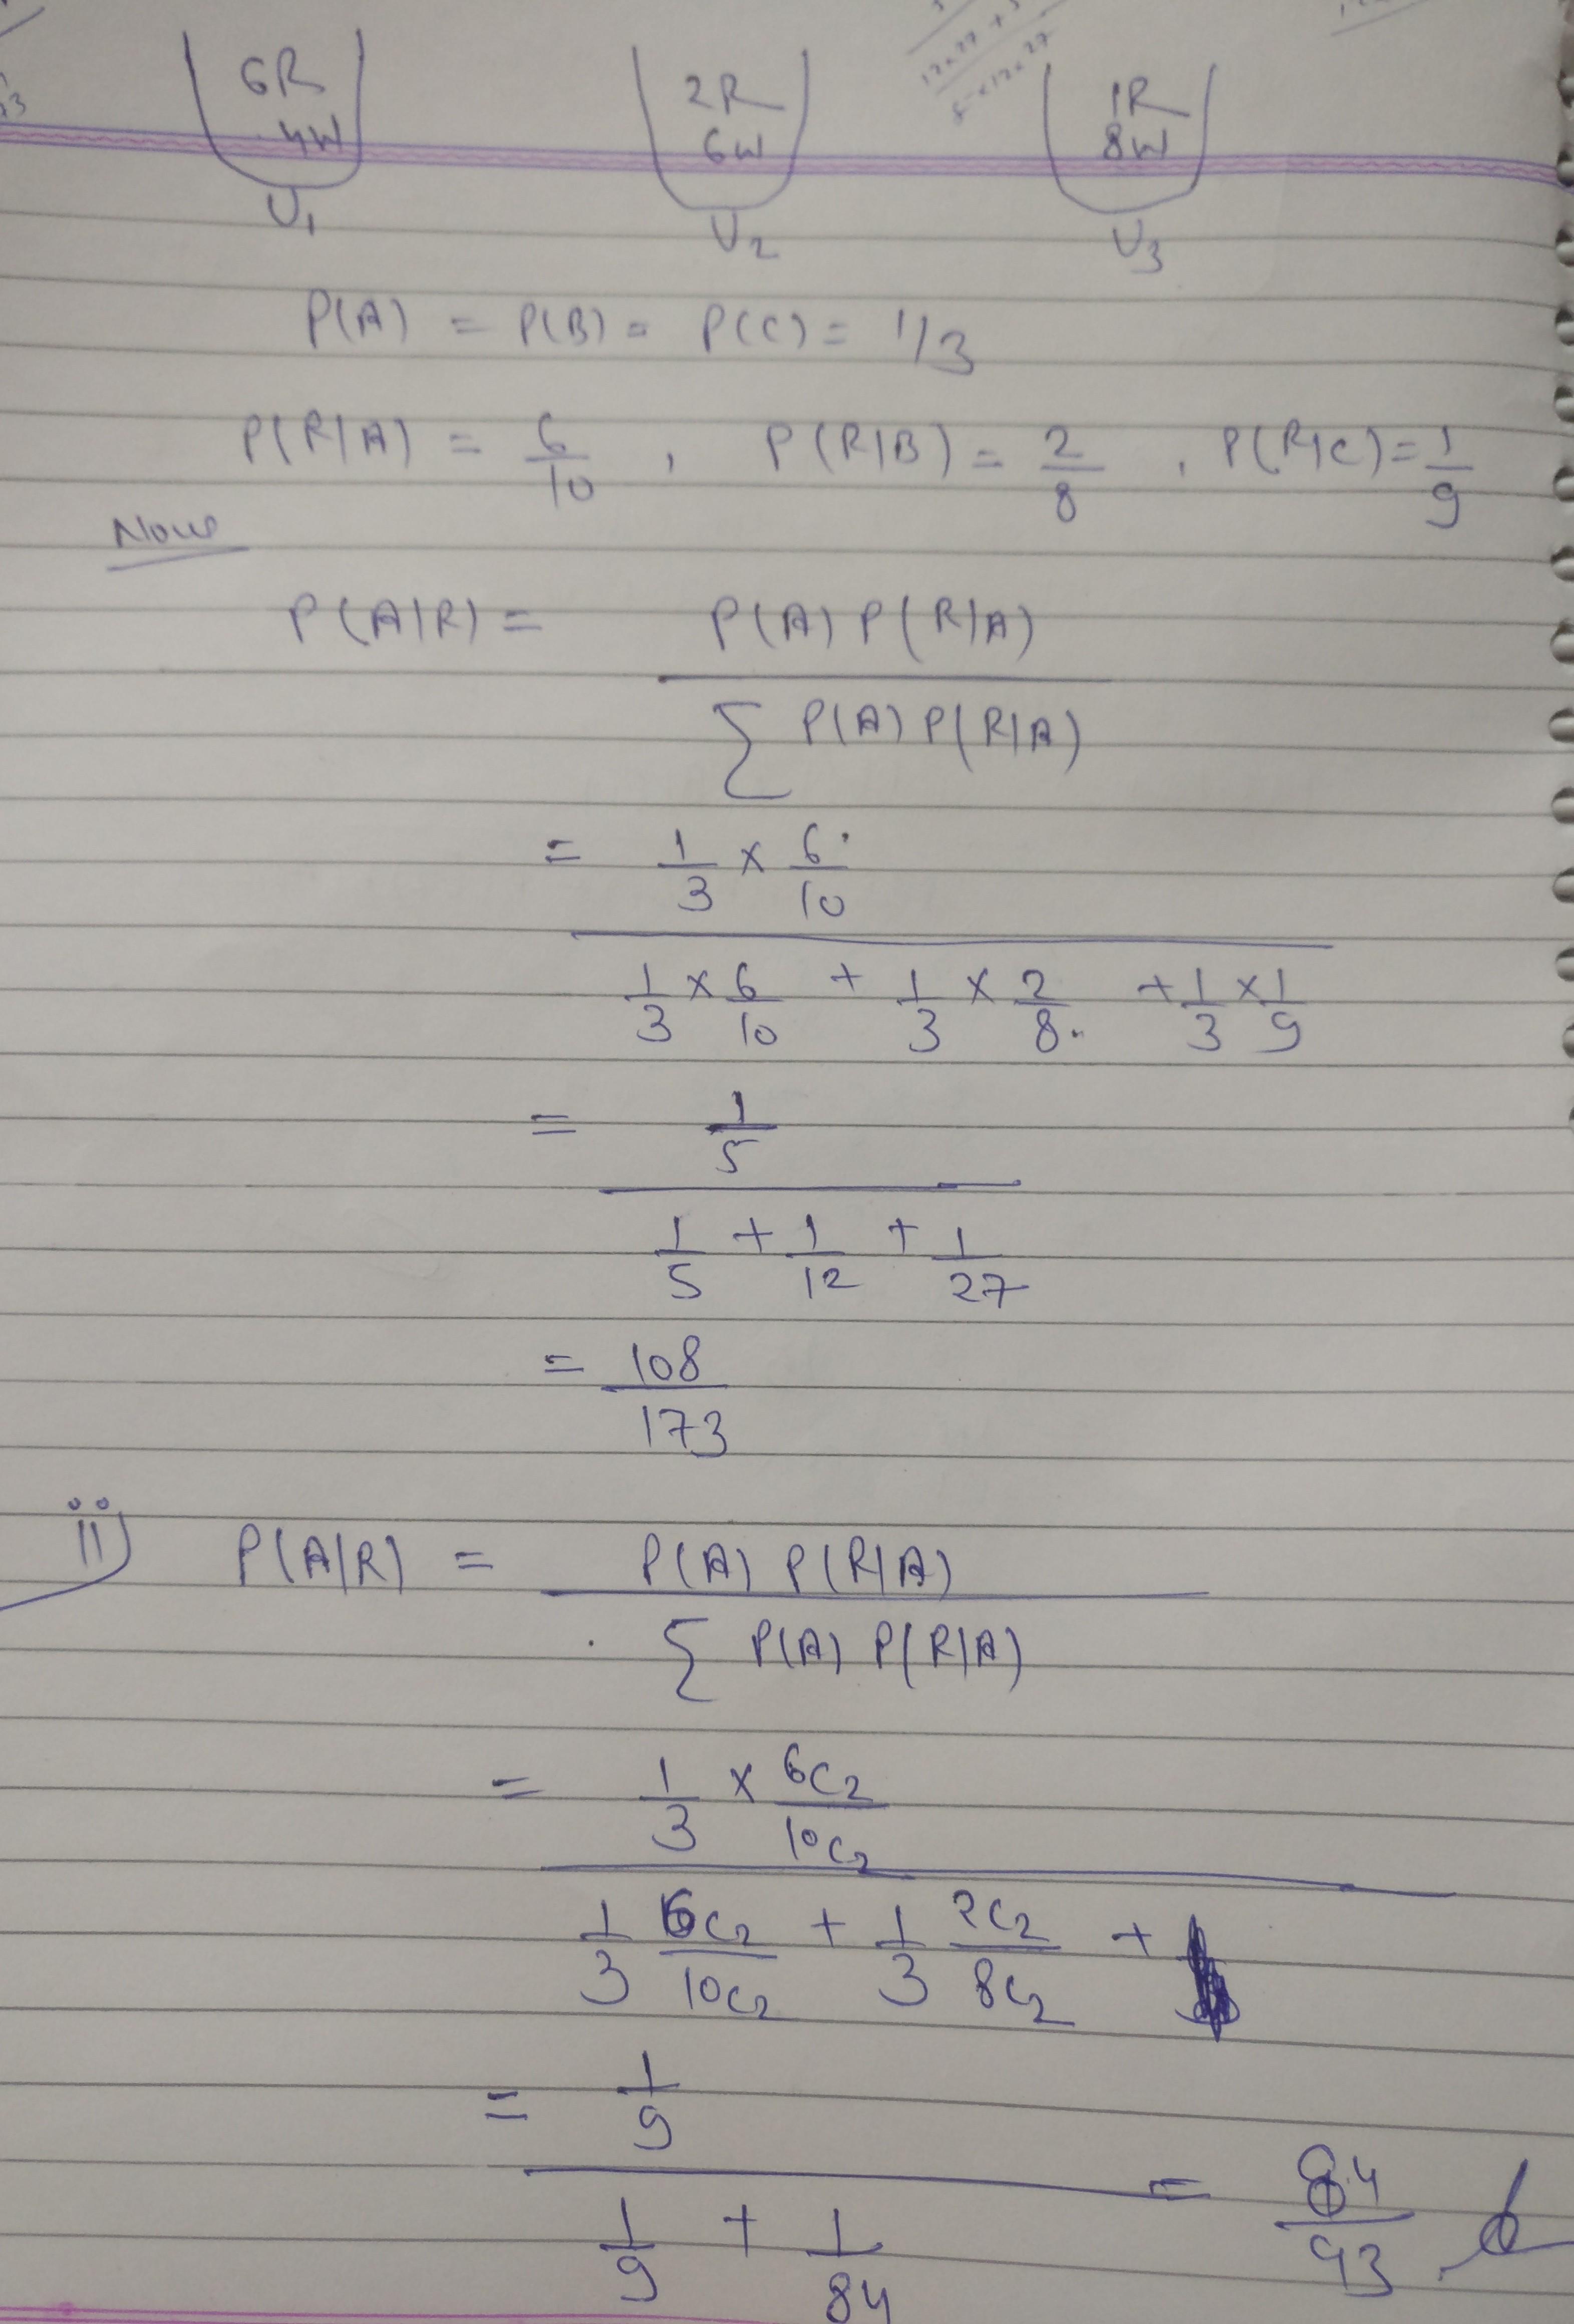 6R 2R 1R
4W 6W 8W
U1 U2 U3
P(A) = P(B) = P(C) = 1/3
P(R|A) = 6/10 , P(R|B) = 2/8 , P(R|C) = 1/9
Now
P(A|R) = P(A) P(R|A)
∑ P(A) P(R|A)
= 1/3 × 6/10
1/3 × 6/10 + 1/3 × 2/8 + 1/3 × 1/9
= 1/5
1/5 + 1/12 + 1/27
= 108/173
ii) P(A|R) = P(A) P(R|A)
∑ P(A) P(R|A)
= 1/3 × 6C2/10C2
1/3 6C2/10C2 + 1/3 2C2/8C2 +
= 1/9
1/9 + 1/84 = 84/93